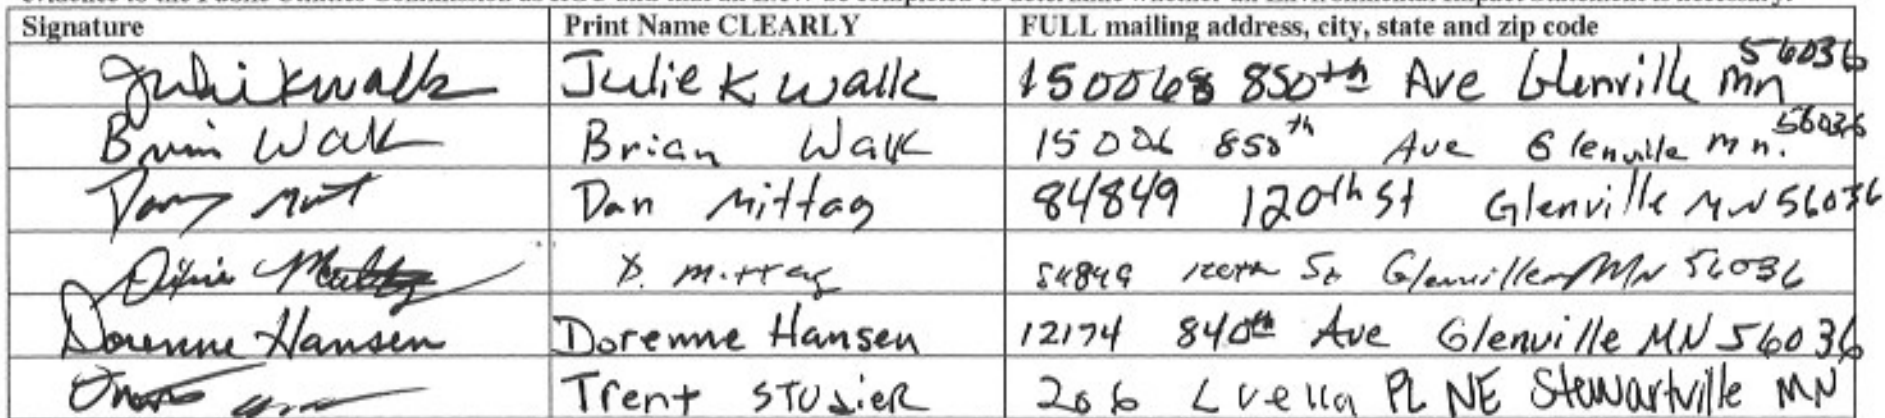 Signature Print Name CLEARLY FULL mailing address, city, state and zip code
Julie K Walk Julie K Walk 15006 850th Ave Glenville mn 56036
Brian Walk Brian Walk 15006 850th Ave Glenville Mn. 56036
Dan Mittag 84849 120th St Glenville MN 56036
D. Mittag 84849 120th St Glenville MN 56036
Dorenne Hansen Dorenne Hansen 12174 840th Ave Glenville MN 56036
Trent STUSIER 206 Luella PL NE Stewartville MN